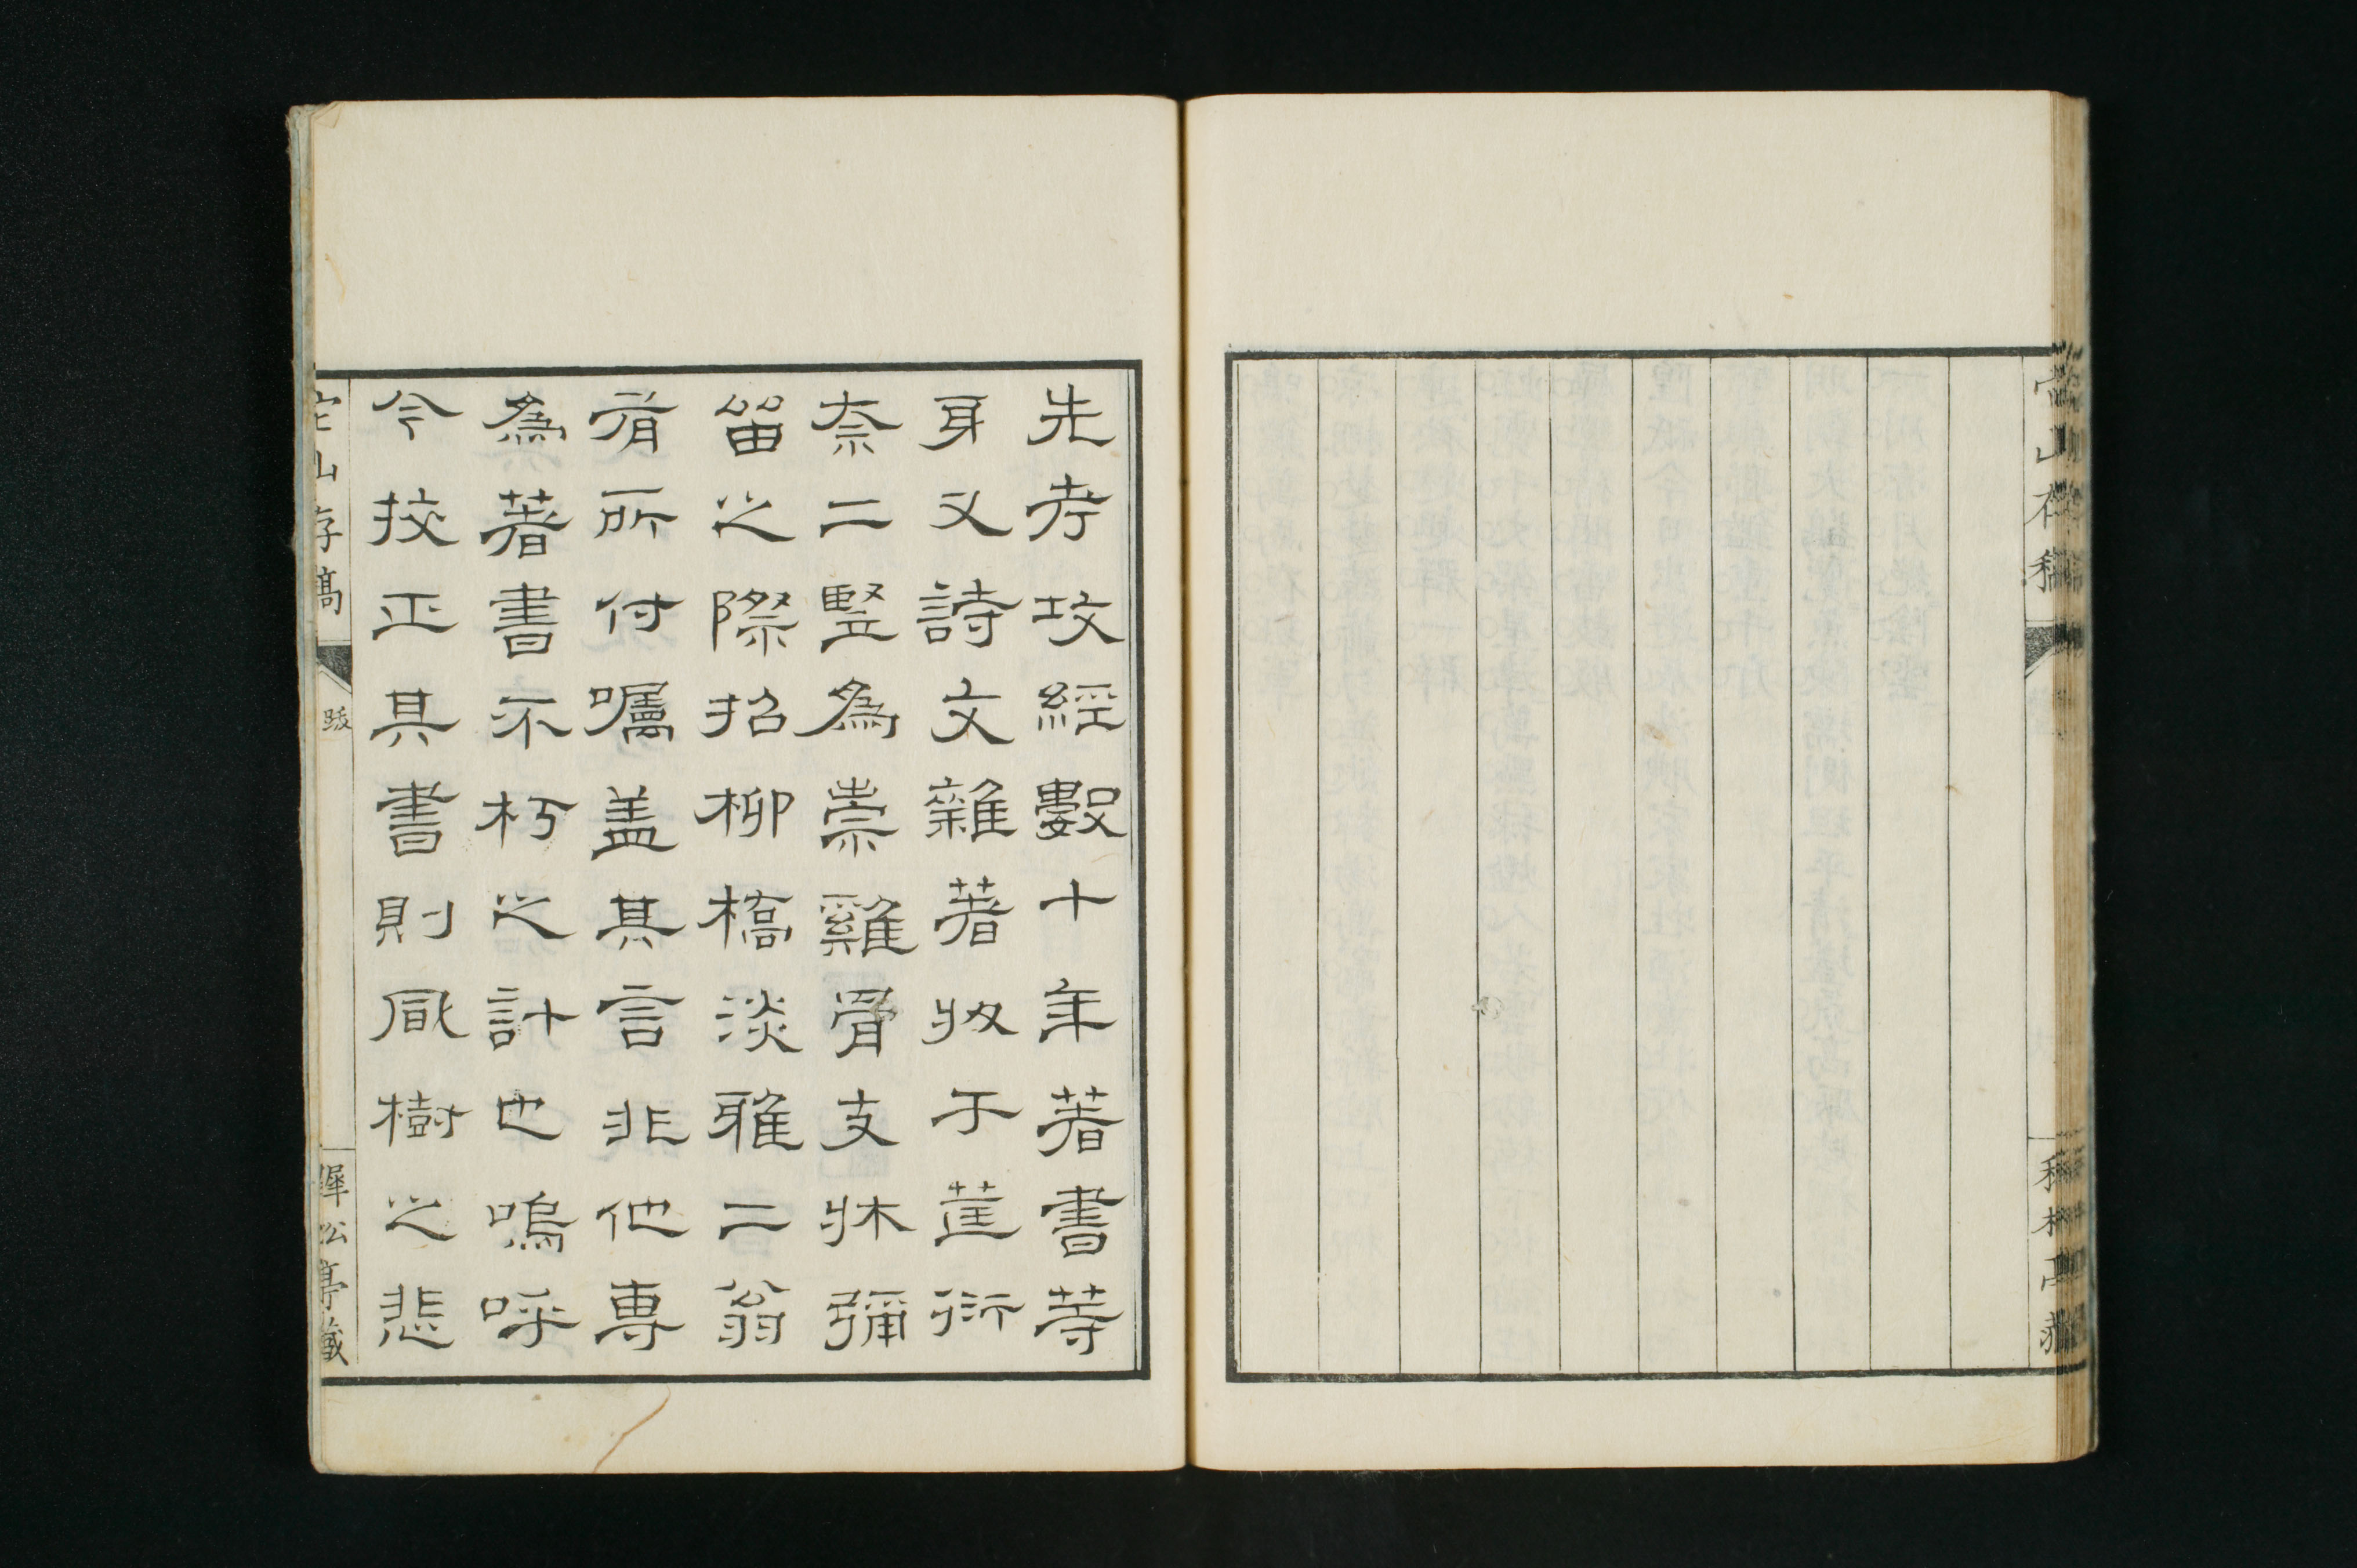 先考攻經數十年著書等
身又詩文雜著收于筐衍
奈二豎為祟雞骨支牀彌
留之際招柳橋淡雅二翁
有所付囑盖其言非他專
為著書不朽之計也嗚呼
今挍正其書則風樹之悲
山存稿
跋
松亭藏